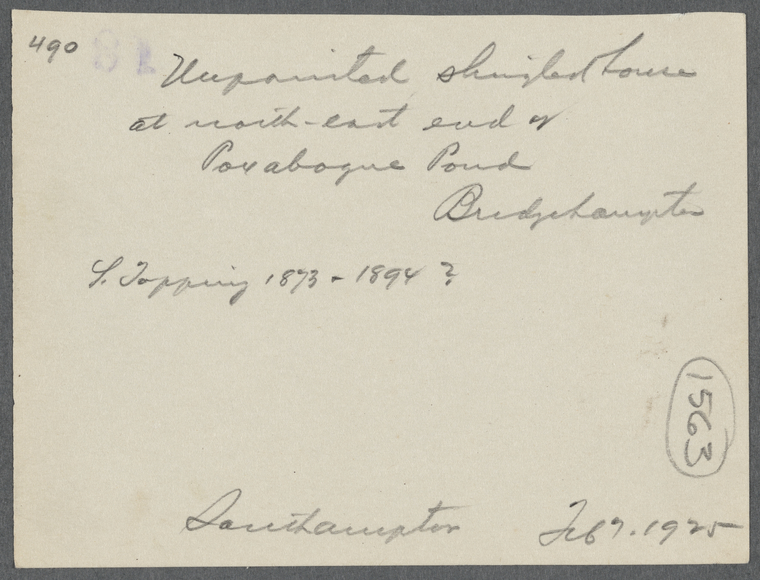 490
Unpainted shingled house
at north-east end of
Poxabogue Pond
Bridgehampton
S. Topping 1873 - 1894 ?
1563
Southampton Feb 7. 1925